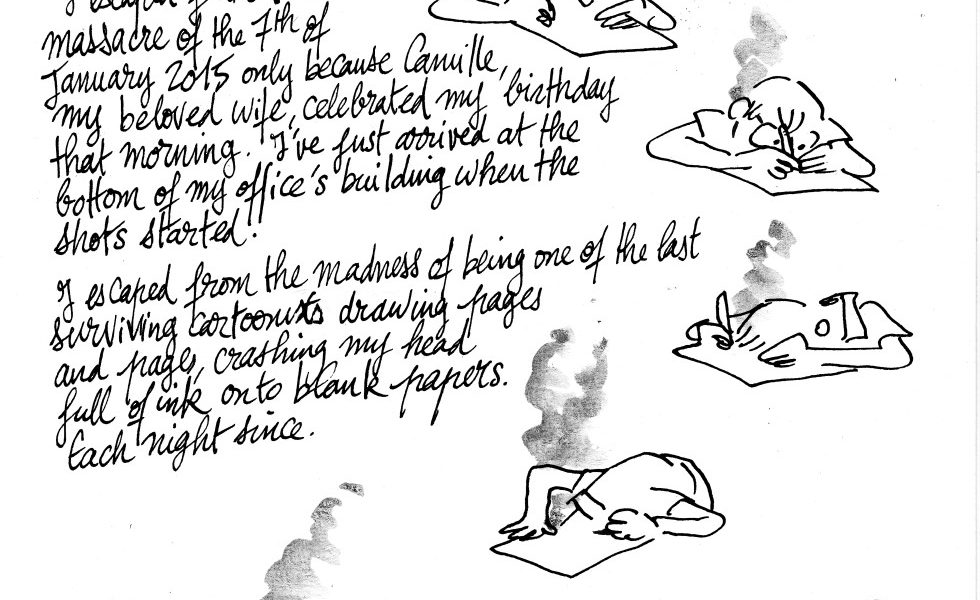 I escaped
massacre of the 7th of
January 2015 only because Camille,
my beloved wife, celebrated my birthday
that morning. I've just arrived at the
bottom of my office's building when the
shots started!
I escaped from the madness of being one of the last
surviving cartoonists drawing pages
and pages, crashing my head
full of ink onto blank papers.
Each night since.